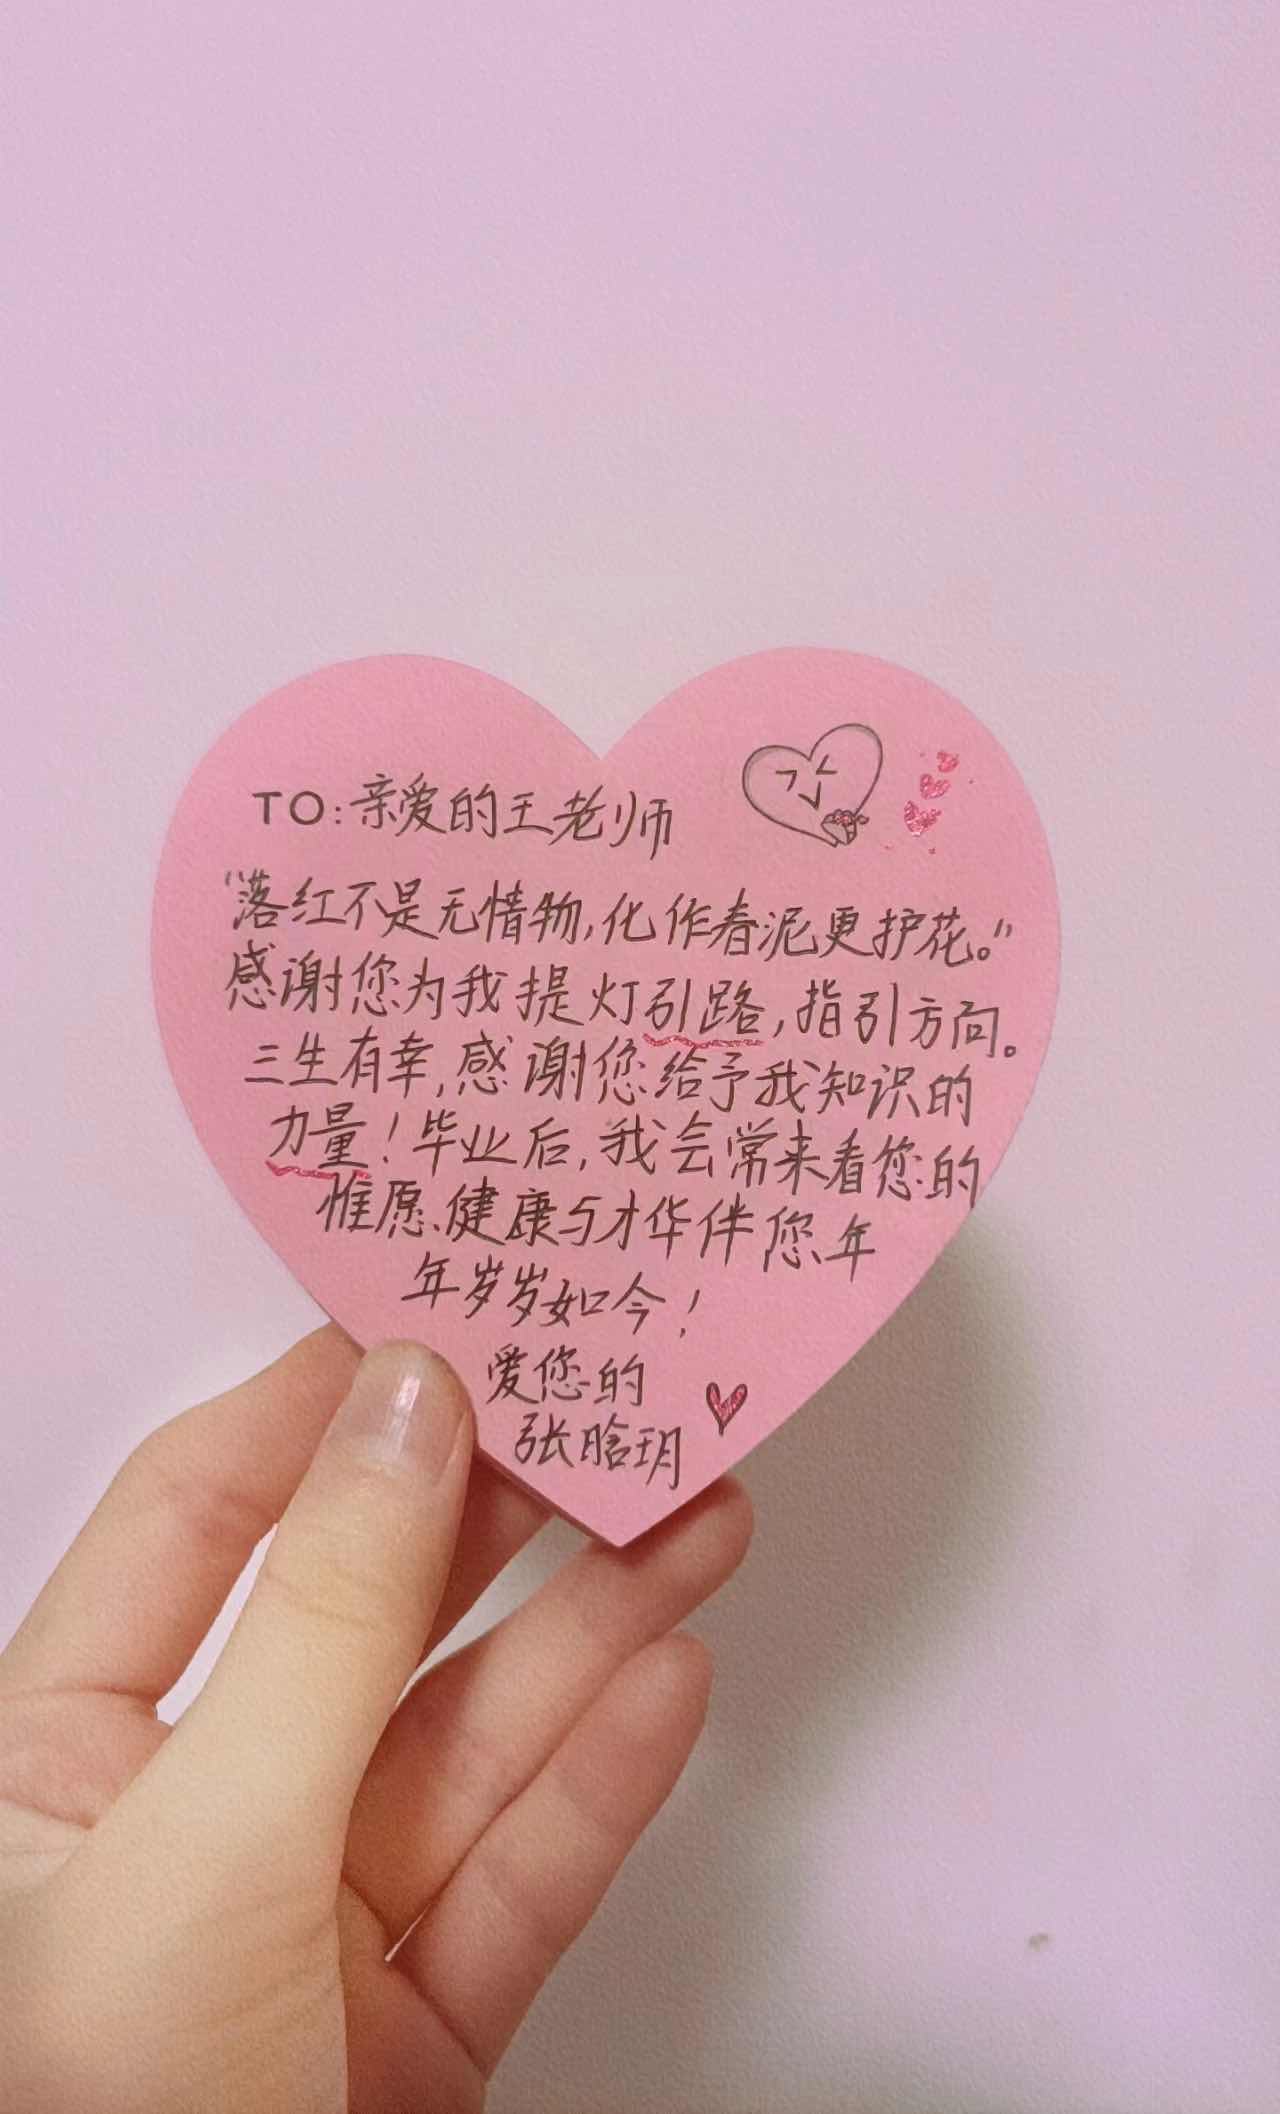 TO:亲爱的王老师
“落红不是无情物,化作春泥更护花。”
感谢您为我提灯引路,指引方向。
三生有幸,感谢您给予我知识的
力量!毕业后,我会常来看您的
惟愿健康与才华伴您年
年岁岁如今!
爱您的
张晗玥